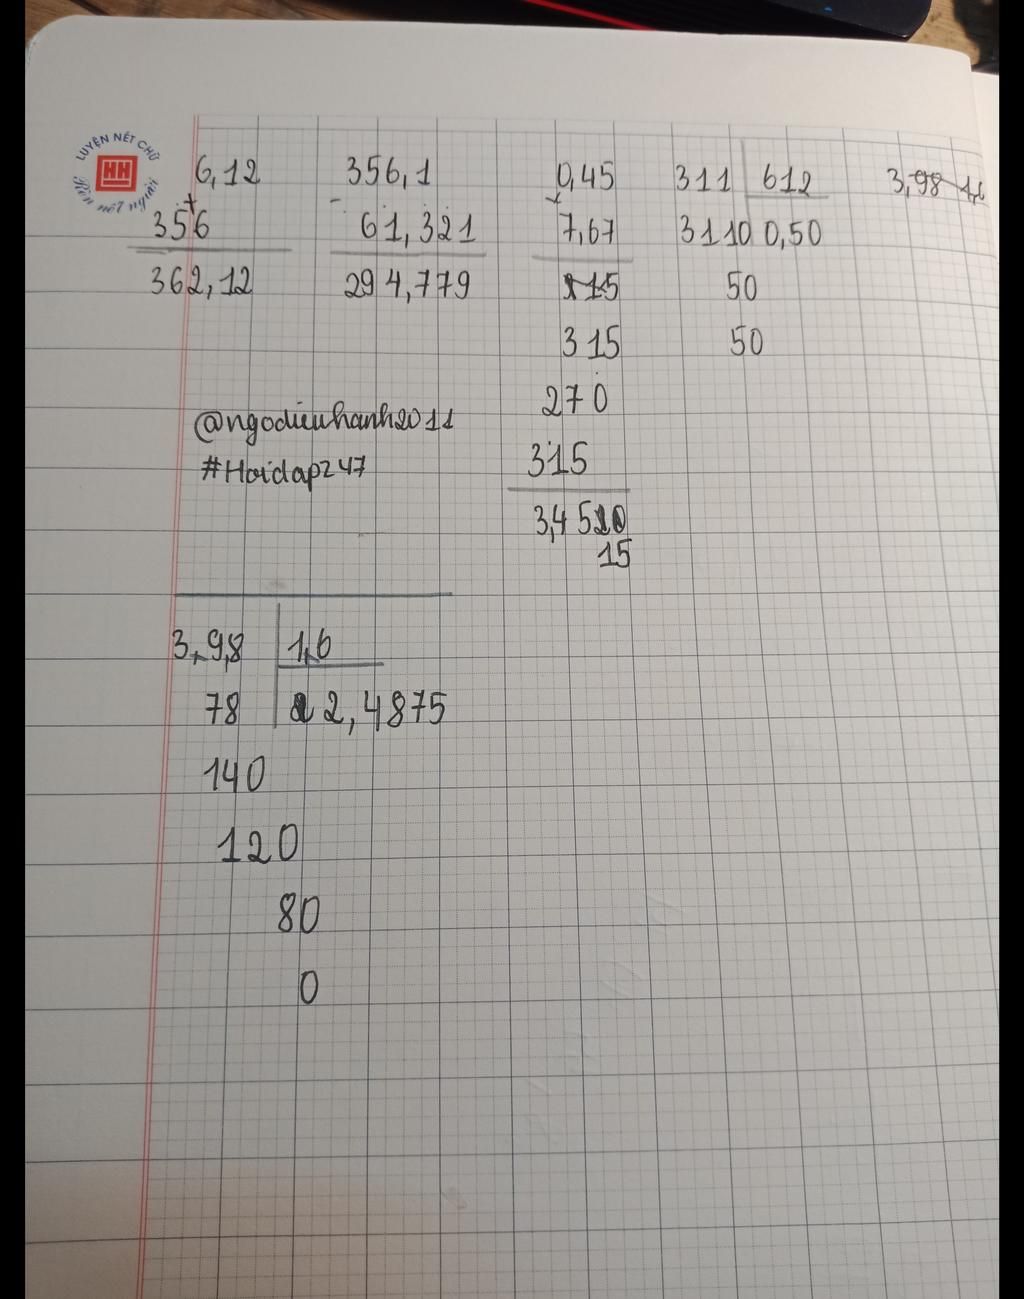 LUYỆN NÉT CHỮ
HH
Rèn nết người
6,12
+
356
362,12
356,1
-
61,321
294,779
0,45
x
7,67
315
270
315
3,45
15
311 612
3110 0,50
50
50
3,98
@ngodieuhanh2011
#Hoidap247
3,9,8 1,6
78 2,4875
140
120
80
0